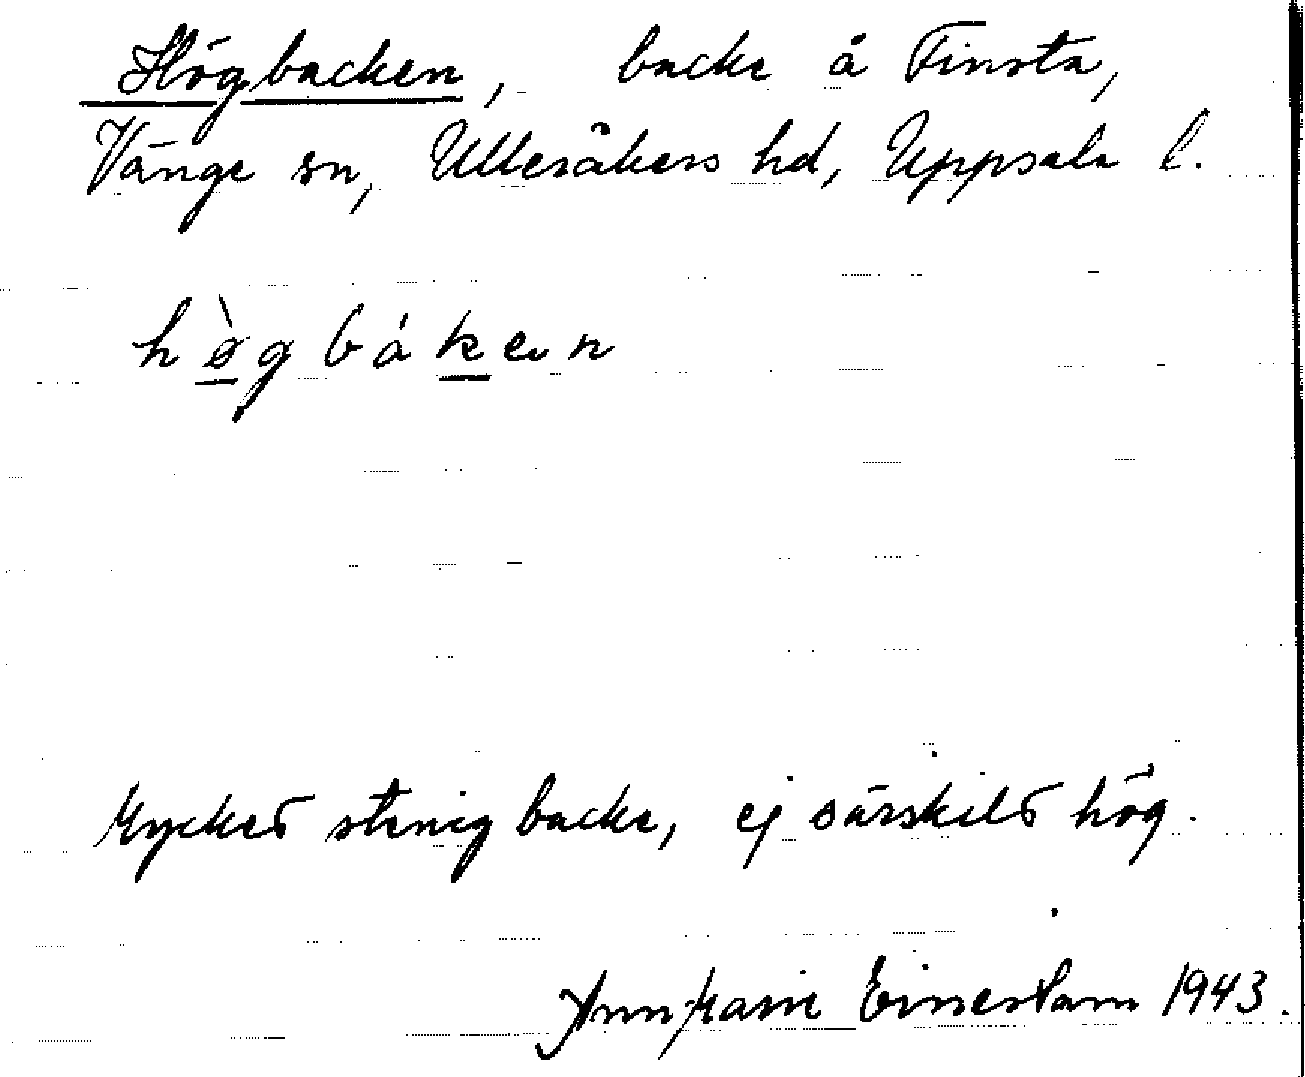 Högbacken, backe å Finsta,
Vänge sn, Ulleråkers hd, Uppsala l.
hø̀gbáken
Mycket stenig backe, ej särskilt hög.
Einerstam 1943.